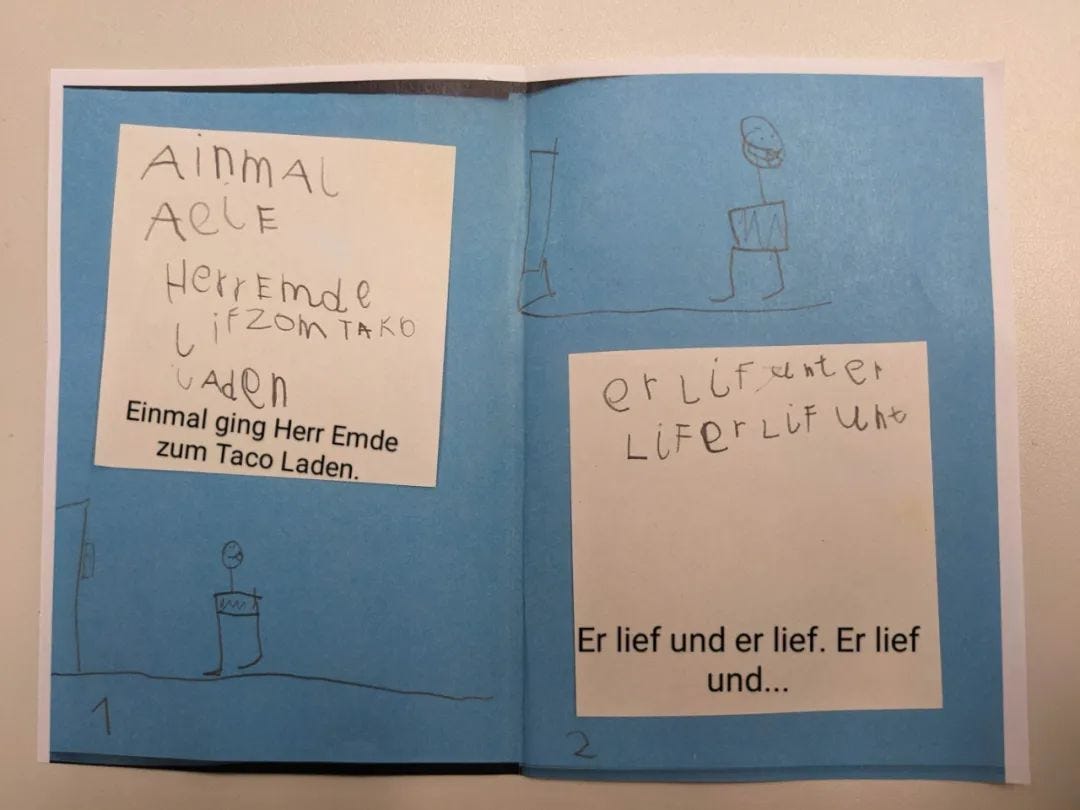 AinmAL
AeLE
HerrEmde
LiFZOmTAKO
LAden
Einmal ging Herr Emde
zum Taco Laden.
1
er LiF unter
LiFerLiF unt
Er lief und er lief. Er lief
und...
2